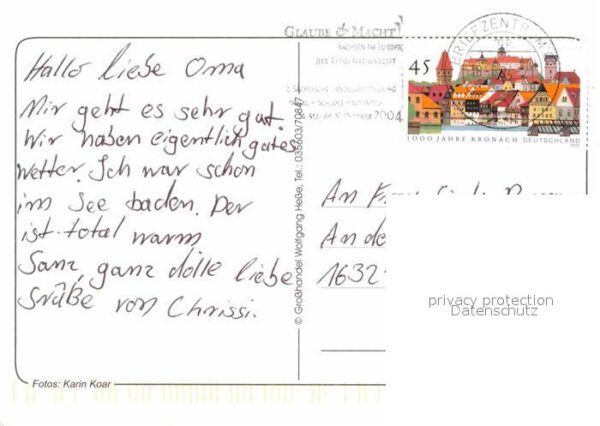 Hallo liebe Oma
Mir geht es sehr gut.
Wir haben eigentlich gutes
Wetter. Ich war schon
im See baden. Der
ist total warm
Ganz, ganz dolle liebe
Grüße von Chrissi.
Fotos: Karin Koar
© Großhandel Wolfgang Heße, Tel.: 035603/70847
GLAUBE & MACHT
SACHSEN IM EUROPA
DER REFORMATIONSZEIT
2. SÄCHSISCHE LANDESAUSSTELLUNG
2004
BRIEFZENTRUM
45
1000 JAHRE KRONACH DEUTSCHLAND
An
An de
1632
privacy protection
Datenschutz